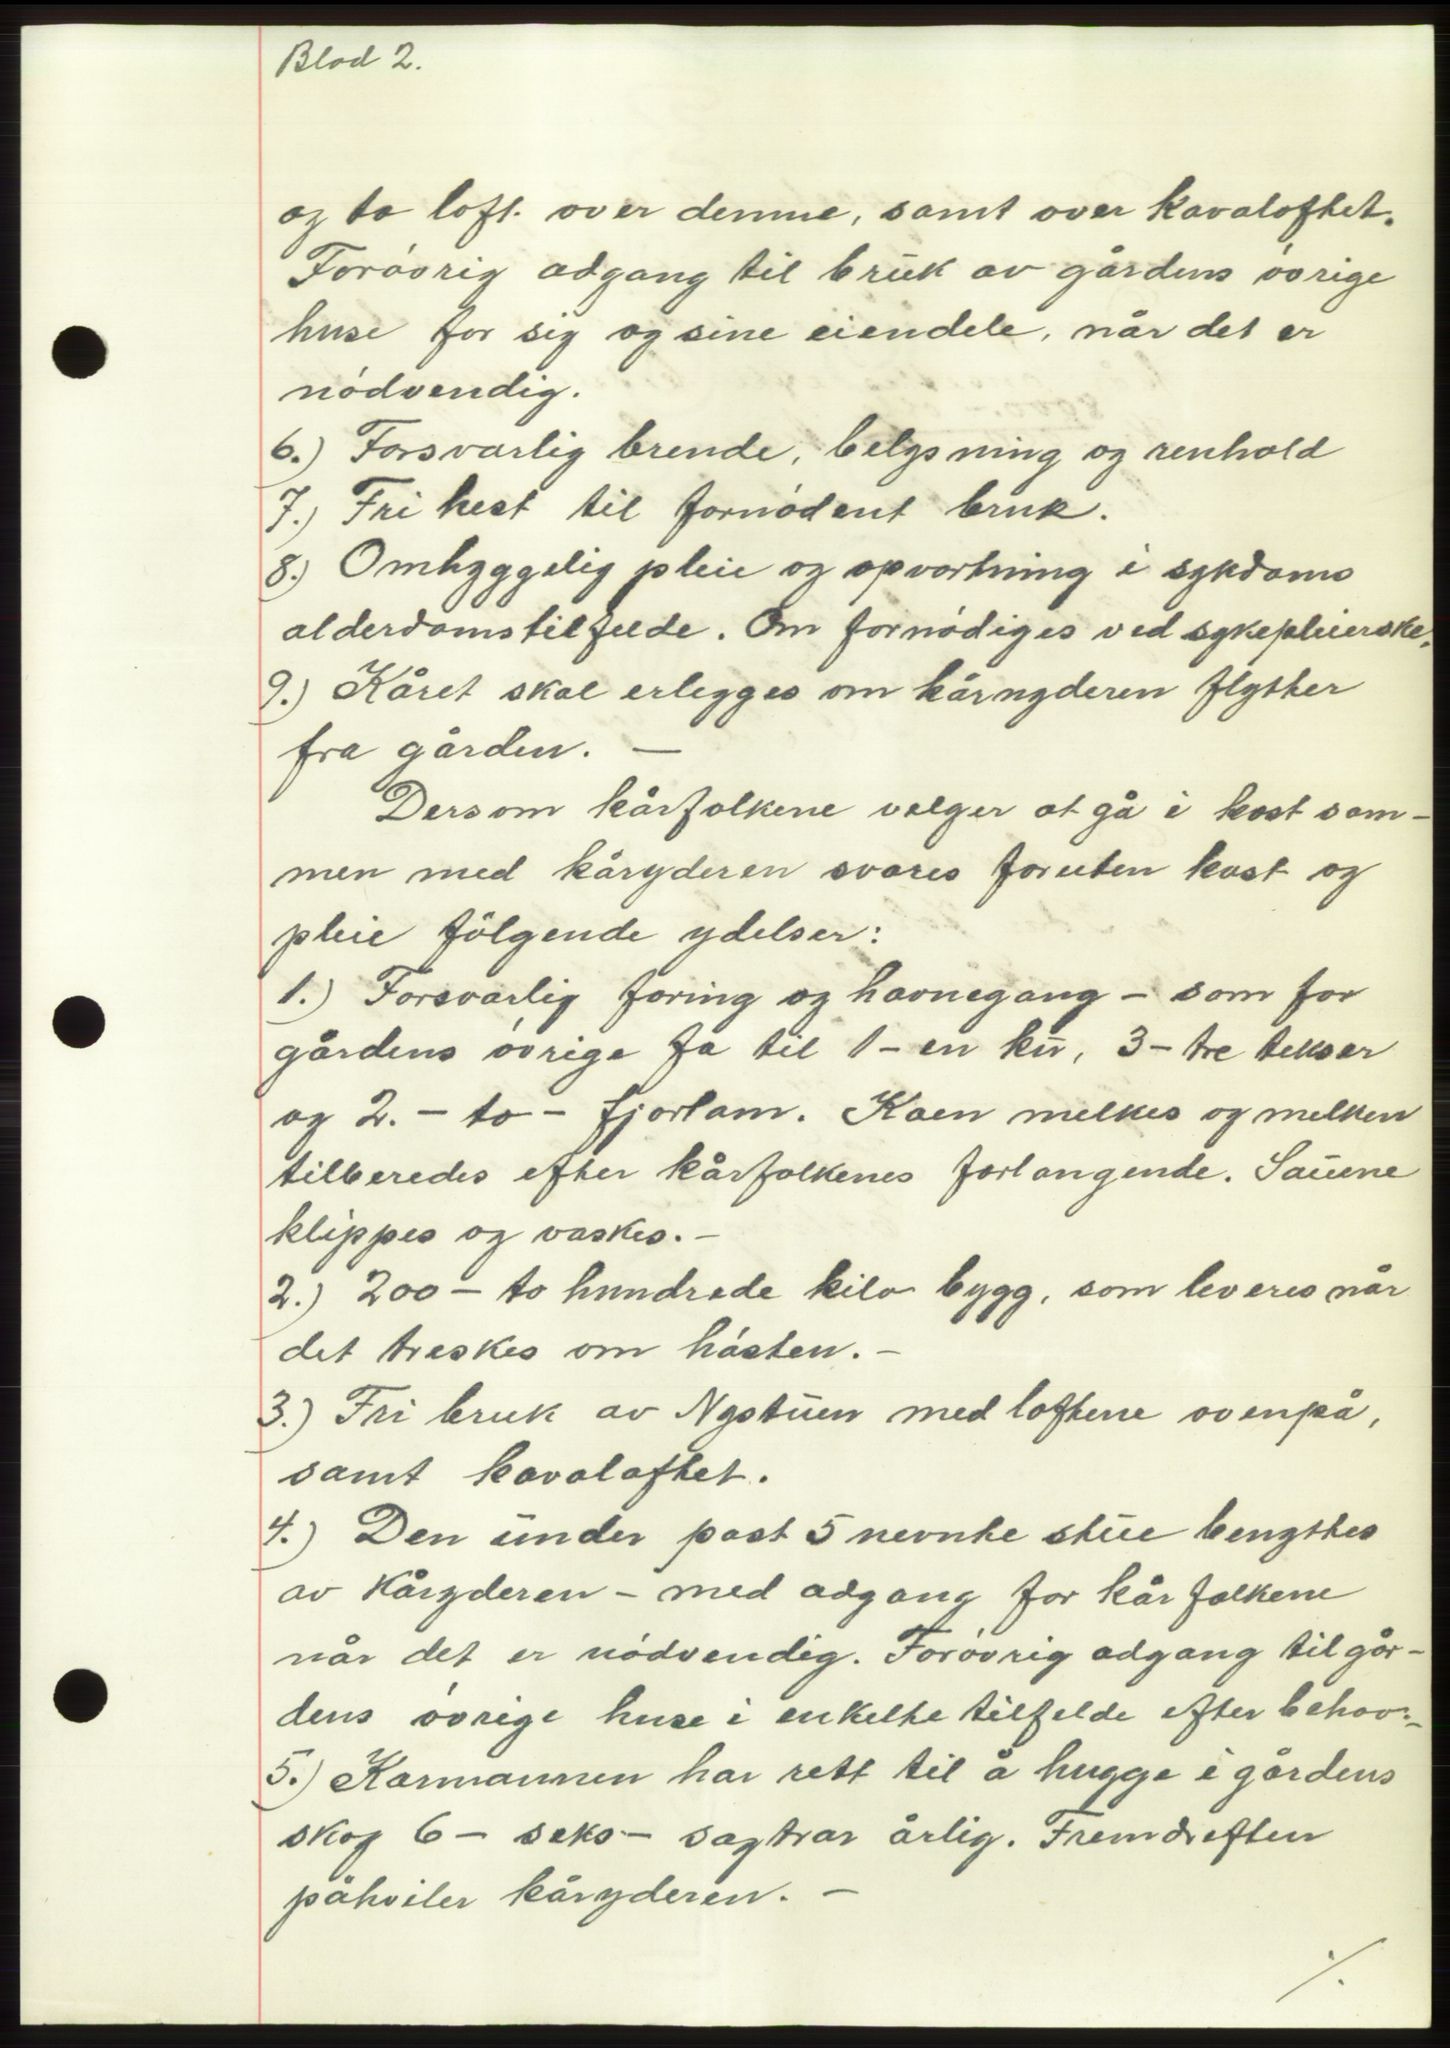 Blad 2.
og to loft. over denne, samt over kavaloftet.
Forøvrig adgang til bruk av gårdens øvrige
huse for sig og sine eiendele, når det er
nødvendig.
6.) Forsvarlig brende, belysning og renhold
7.) Fri hest til fornødent bruk.
8.) Omhyggelig pleie og opvartning i sykdoms
alderdomstilfelde. Om fornødiges ved sykepleierske.
9.) Kåret skal erlegges om kårnyderen flytter
fra gården. —
Dersom kårfolkene velger at gå i kost sam-
men med kåryderen svares foruten kost og
pleie følgende ydelser:
1.) Forsvarlig foring og havnegang - som for
gårdens øvrige fø til 1 - en ku, 3 - tre tekser
og 2. - to - fjorlam. Koen melkes og melken
tilberedes efter kårfolkenes forlangende. Sauene
klippes og vaskes. -
2.) 200 - to hundrede kilo bygg, som leveres når
det treskes om høsten. -
3.) Fri bruk av Nystuen med loftene ovenpå,
samt kavaloftet.
4.) Den under post 5 nevnte stue benyttes
av kåryderen - med adgang for kårfolkene
når det er nødvendig. Forøvrig adgang til går-
dens øvrige huse i enkelte tilfelde efter behov. -
5.) Karmannen har rett til å hugge i gårdens
skog 6 - seks - sagtrær årlig. Fremdriften
påhviler kåryderen. -
./.